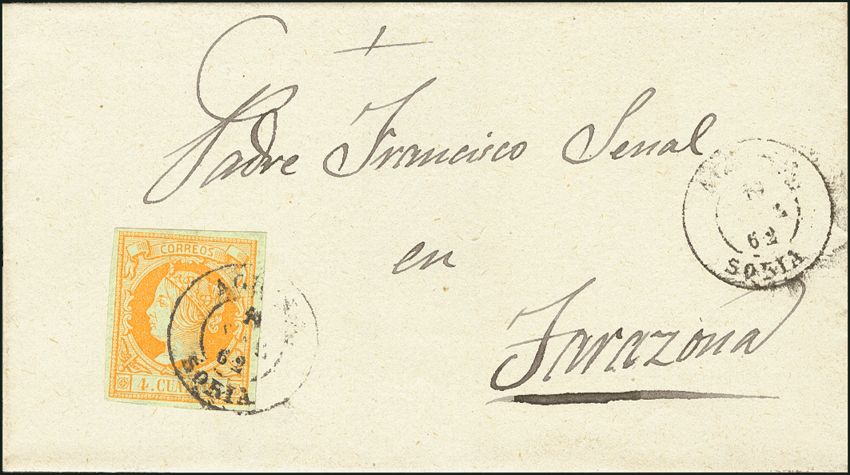 Padre Francisco Senal
en
Tarazona
CORREOS
4. CU
62
SORIA
62
SORIA